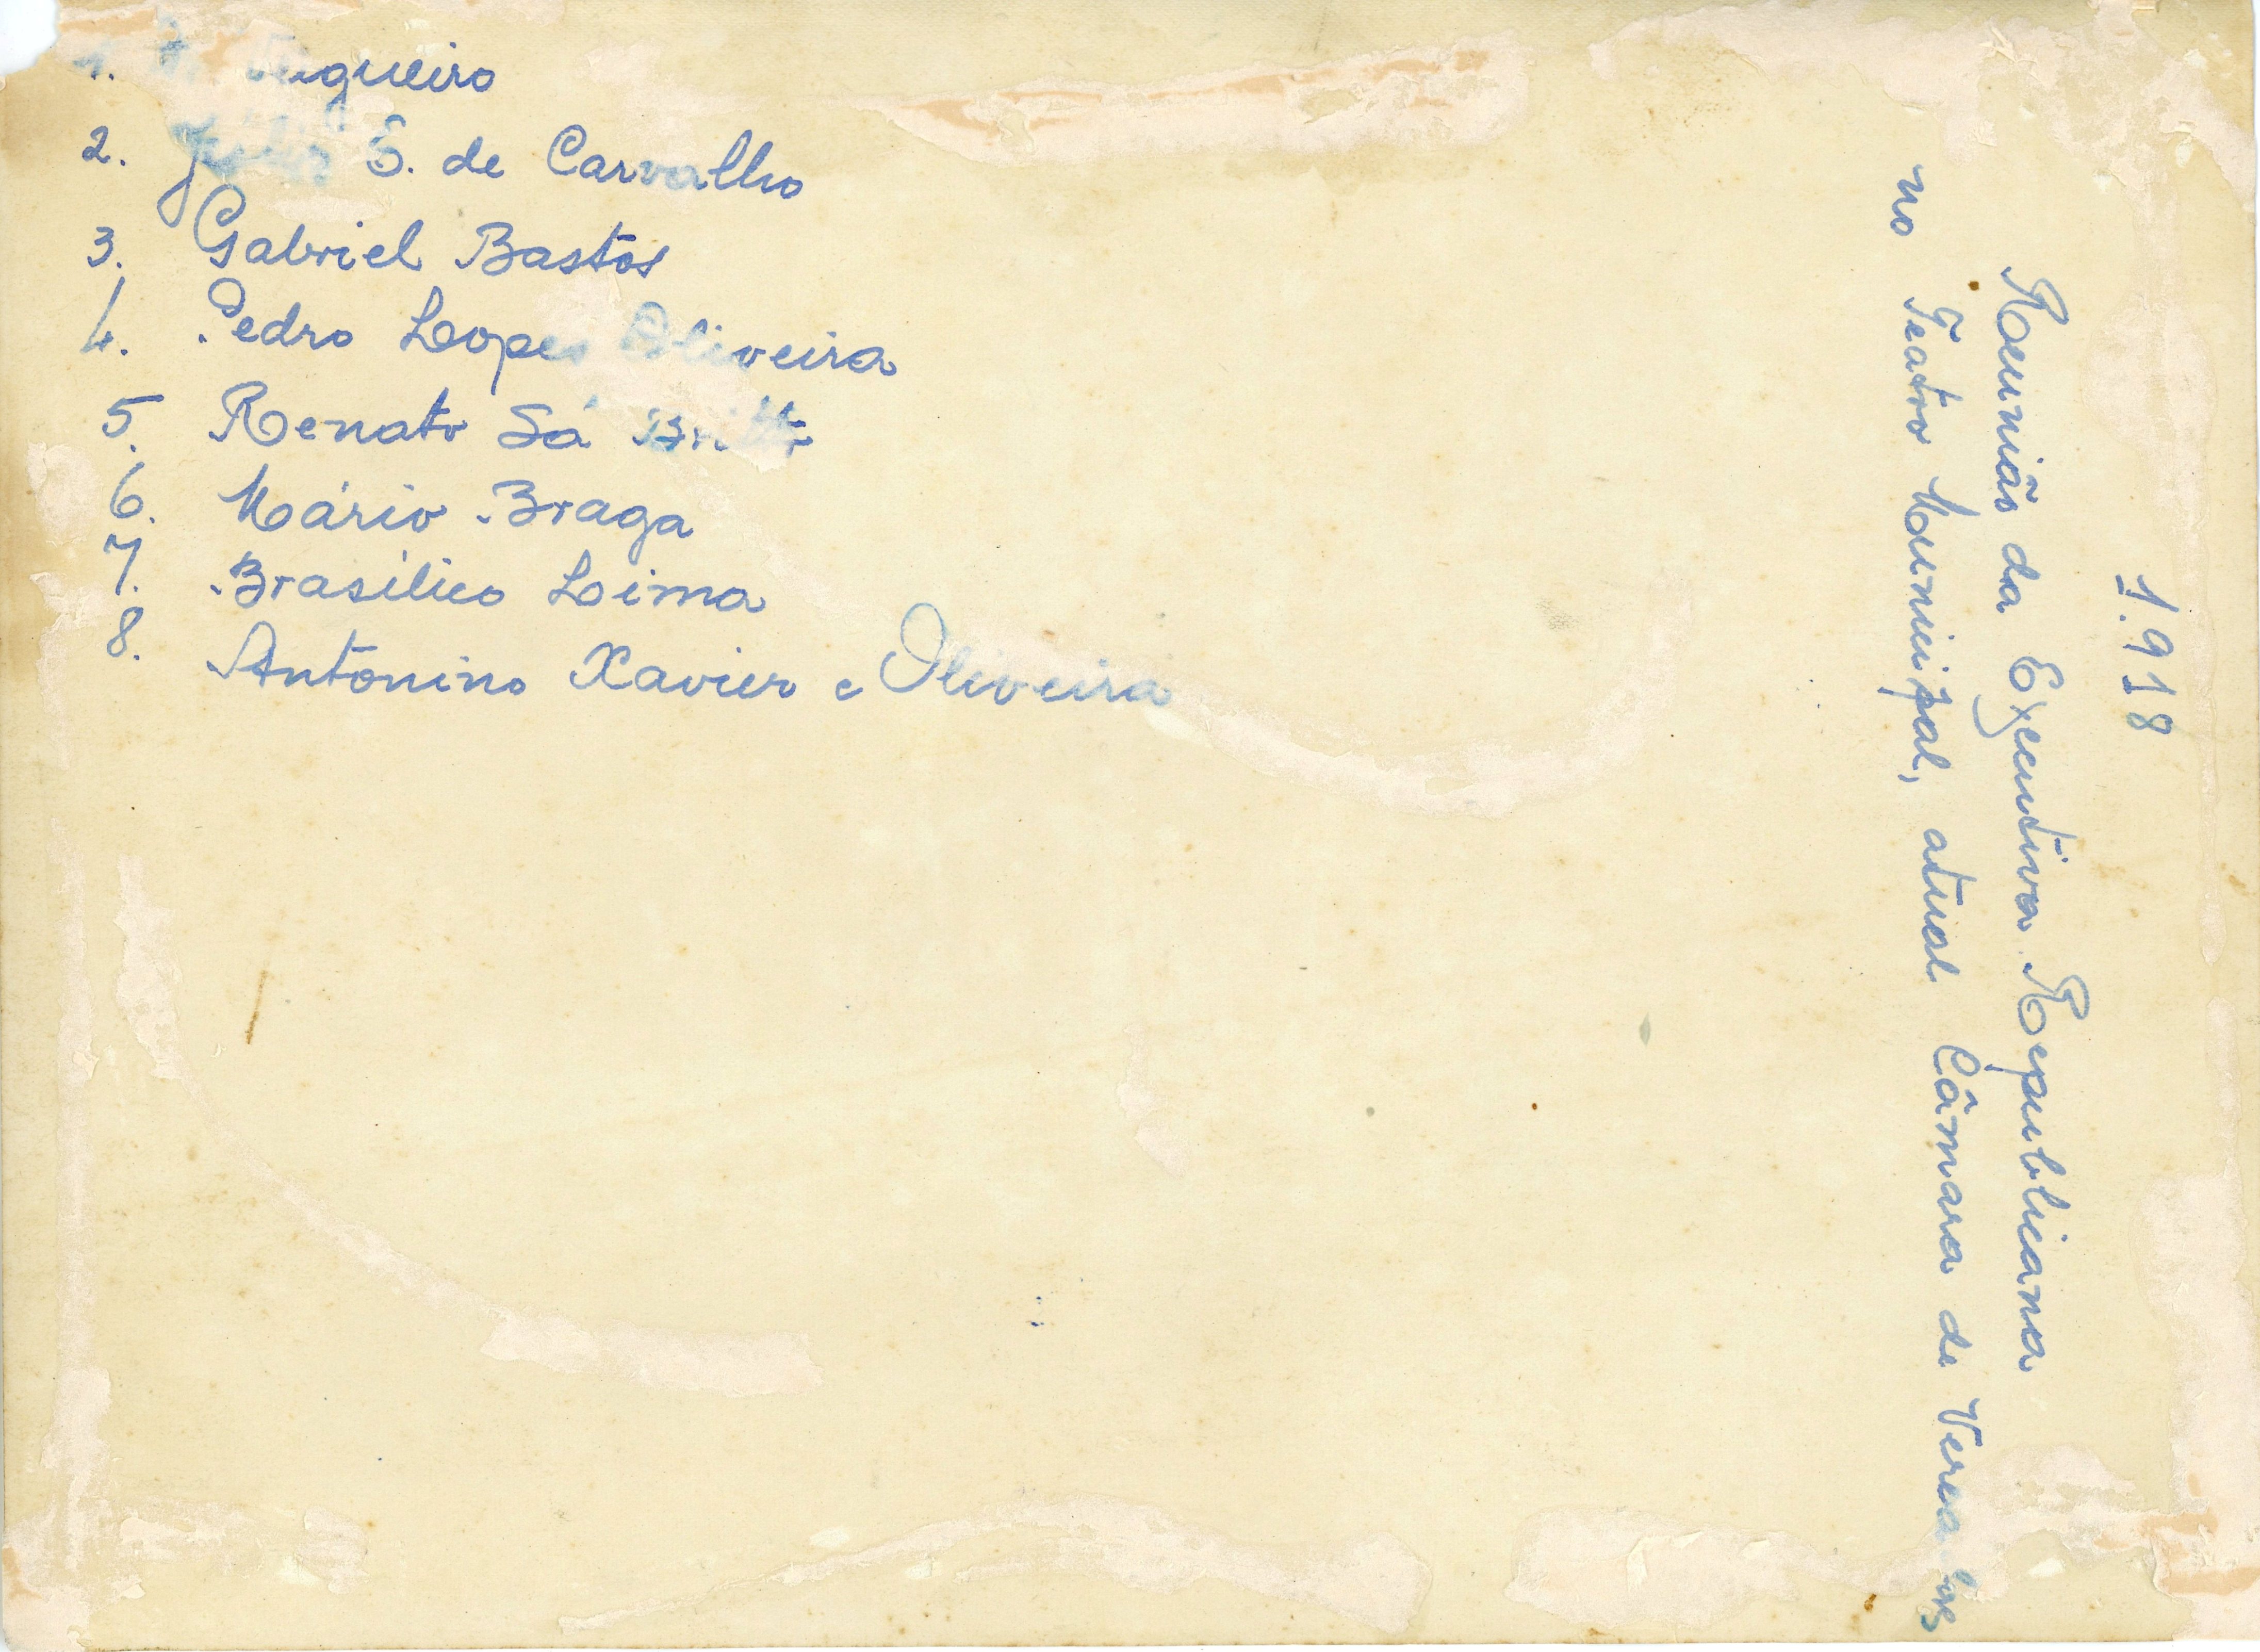 1.
2. S. de Carvalho
3. Gabriel Bastos
4. Pedro Lopes Oliveira
5. Renato Sá Britto
6. Mário Braga
7. Brasilico Lima
8. Antonino Xavier e Oliveira
1.918
Reunião da Executiva Republicana
no Teatro Municipal, atual Câmara de Vereadores